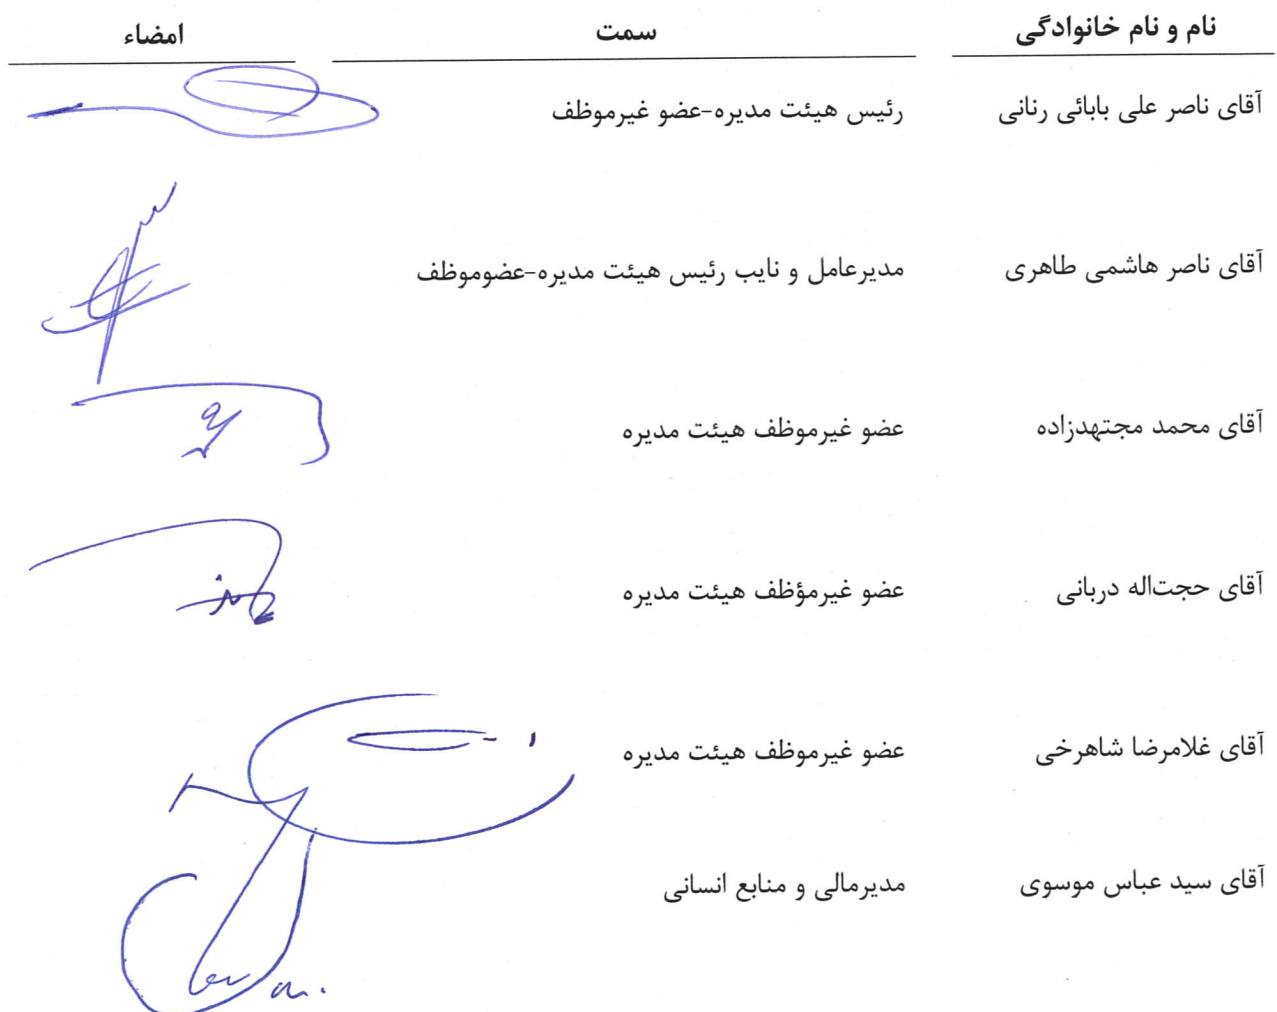 نام و نام خانوادگی سمت امضاء
آقای ناصر علی بابائی رنانی رئیس هیئت مدیره-عضو غیرموظف
آقای ناصر هاشمی طاهری مدیرعامل و نایب رئیس هیئت مدیره-عضوموظف
آقای محمد مجتهدزاده عضو غیرموظف هیئت مدیره
آقای حجت‌اله دربانی عضو غیرمؤظف هیئت مدیره
آقای غلامرضا شاهرخی عضو غیرموظف هیئت مدیره
آقای سید عباس موسوی مدیرمالی و منابع انسانی